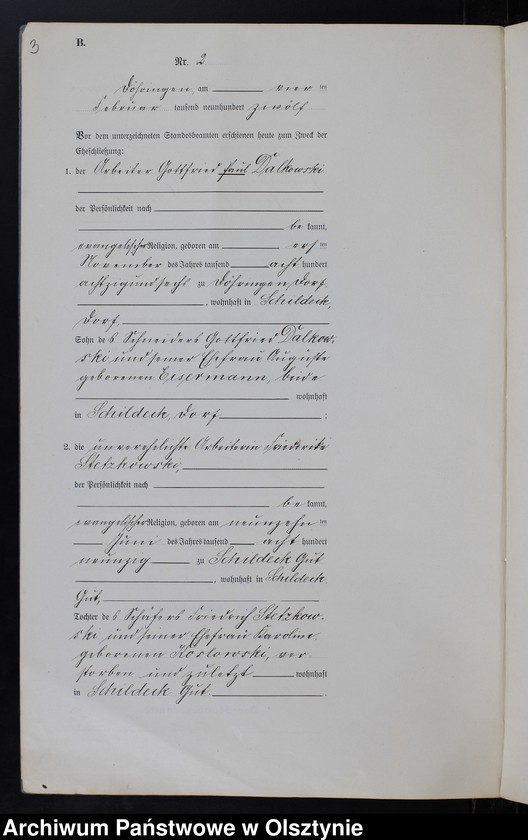 3
B.
Nr. 2
Döhringen, am vier ten
Februar tausend neunhundert zwölf
Vor dem unterzeichneten Standesbeamten erschienen heute zum Zweck der
Eheschließung:
1. der Arbeiter Gottfried Paul Dalkowski
der Persönlichkeit nach
be kannt,
evangelischer Religion, geboren am ers ten
November des Jahres tausend acht hundert
achtzigundsechs zu Döhringen Dorf,
, wohnhaft in Schildeck,
Dorf,
Sohn des Schneiders Gottfried Dalkow-
ski und seiner Ehefrau Auguste
geborenen Eisermann, beide
wohnhaft
in Schildeck, Dorf ;
2. die unverehelichte Arbeiterin Friederike
Stetzkowski,
der Persönlichkeit nach
be kannt,
evangelischer Religion, geboren am neunzehn ten
Juni des Jahres tausend acht hundert
neunzig zu Schildeck Gut
, wohnhaft in Schildeck,
Gut,
Tochter des Schäfers Friedrich Stetzkow-
ski und seiner Ehefrau Karoline,
geborenen Koslowski, ver-
storben und zuletzt wohnhaft
in Schildeck Gut .
Archiwum Państwowe w Olsztynie